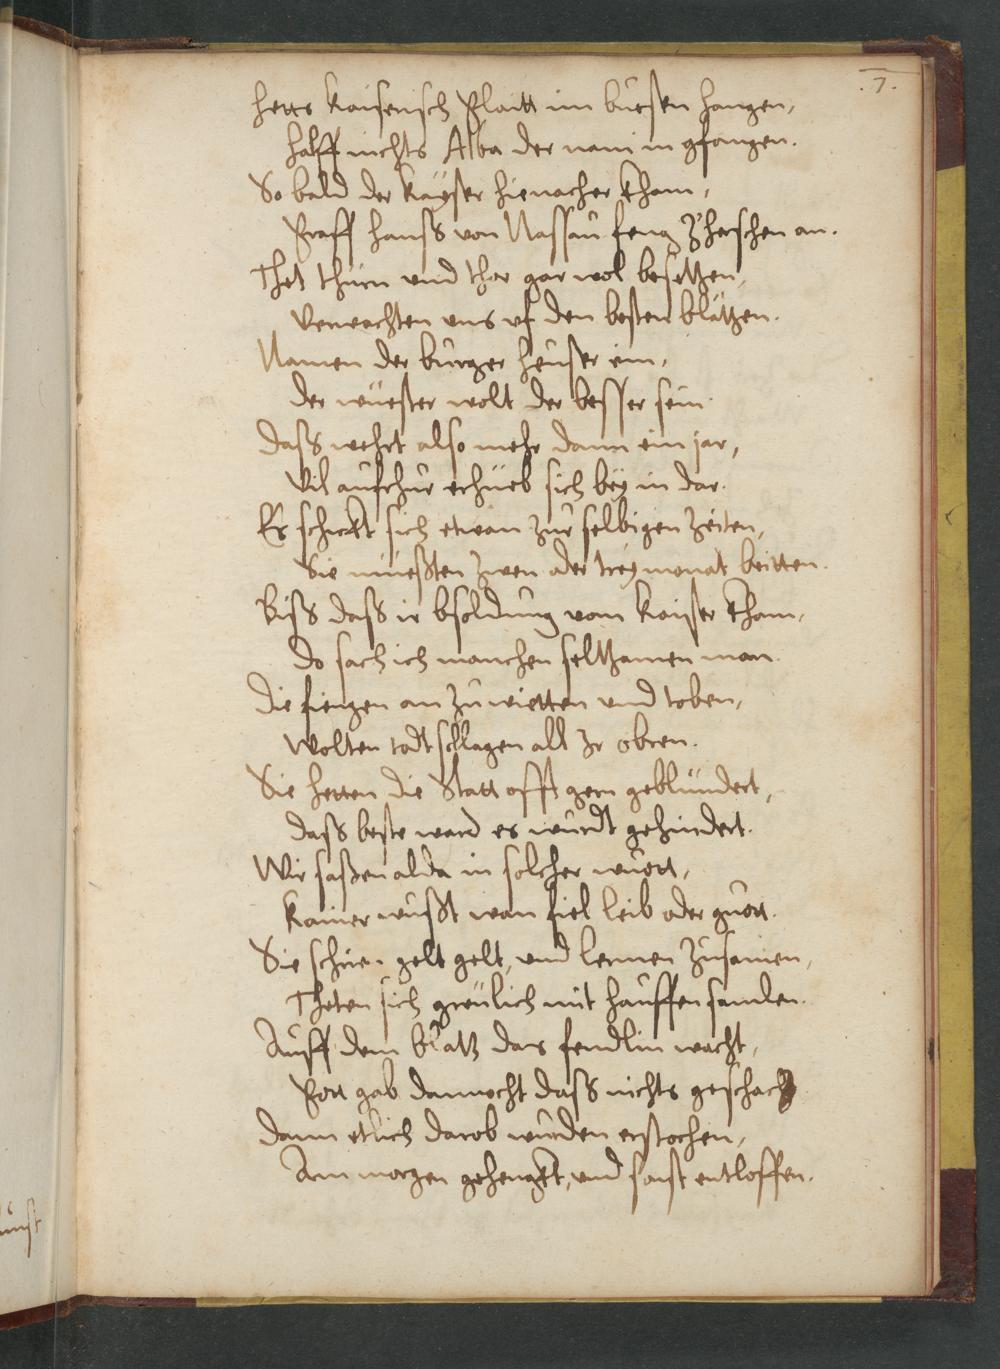 .7.
Hetts kaiserisch Glaitt im buesen hangen,
halff nichts Alba der nam in gfangen.
So bald der kayser hienacher kham,
Graff hanss von Nassau feng z'herschen an.
Thet thürn und thor gar wol besetzen,
Verwachten uns uf den besten blätzen.
Namen der burger heuser ein,
der wüester wolt der besser sein.
Dass wehrt also mehr dann ein jar,
Vil aufrhur erhüeb sich bey in dar.
Es schickt sich etwan zur selbigen zeiten,
Sie müessten zwen oder trey monat beitten.
Biss dass ir bsoldung vom kaiser kham,
Do sach ich manchen selthzamen man.
Die fiengen an zu wietten und toben,
Wolten todt schlagen all Ir obren.
Sie hetten die Statt offt gern geblündert,
dass beste ward es wurdt gehindert.
Wir sassen alda in solcher wuott,
kainer wusst wan fiel leib oder guott.
Sie schrien gelt gelt, und lermen zusamen,
Theten sich greülich mit hauffen samlen.
Auff dem blatz das fendlin wacht,
Gott gab dannocht dass nichts geschach
Dann etlich darob wurden erstochen,
Am morgen gehengkt, und sonst entloffen.
unst